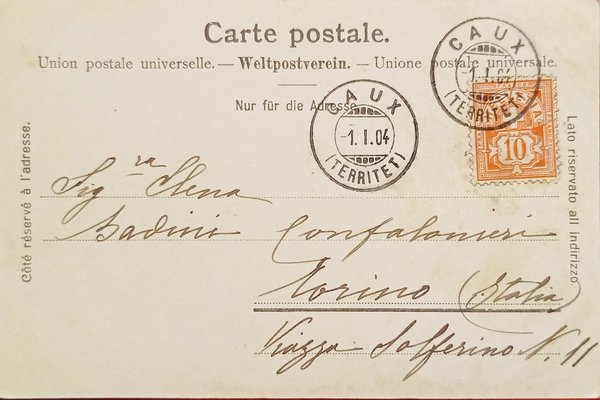 Carte postale.
Union postale universelle. — Weltpostverein. — Unione postale universale.
Nur für die Adresse
CAUX
-1.I.04
(TERRITET)
CAUX
-1.I.04
(TERRITET)
10
Côté réservé à l'adresse.
Lato riservato all indirizzo
Sig ra Elena
Badini Confalonieri
Torino (Italia)
Piazza Solferino N. 11